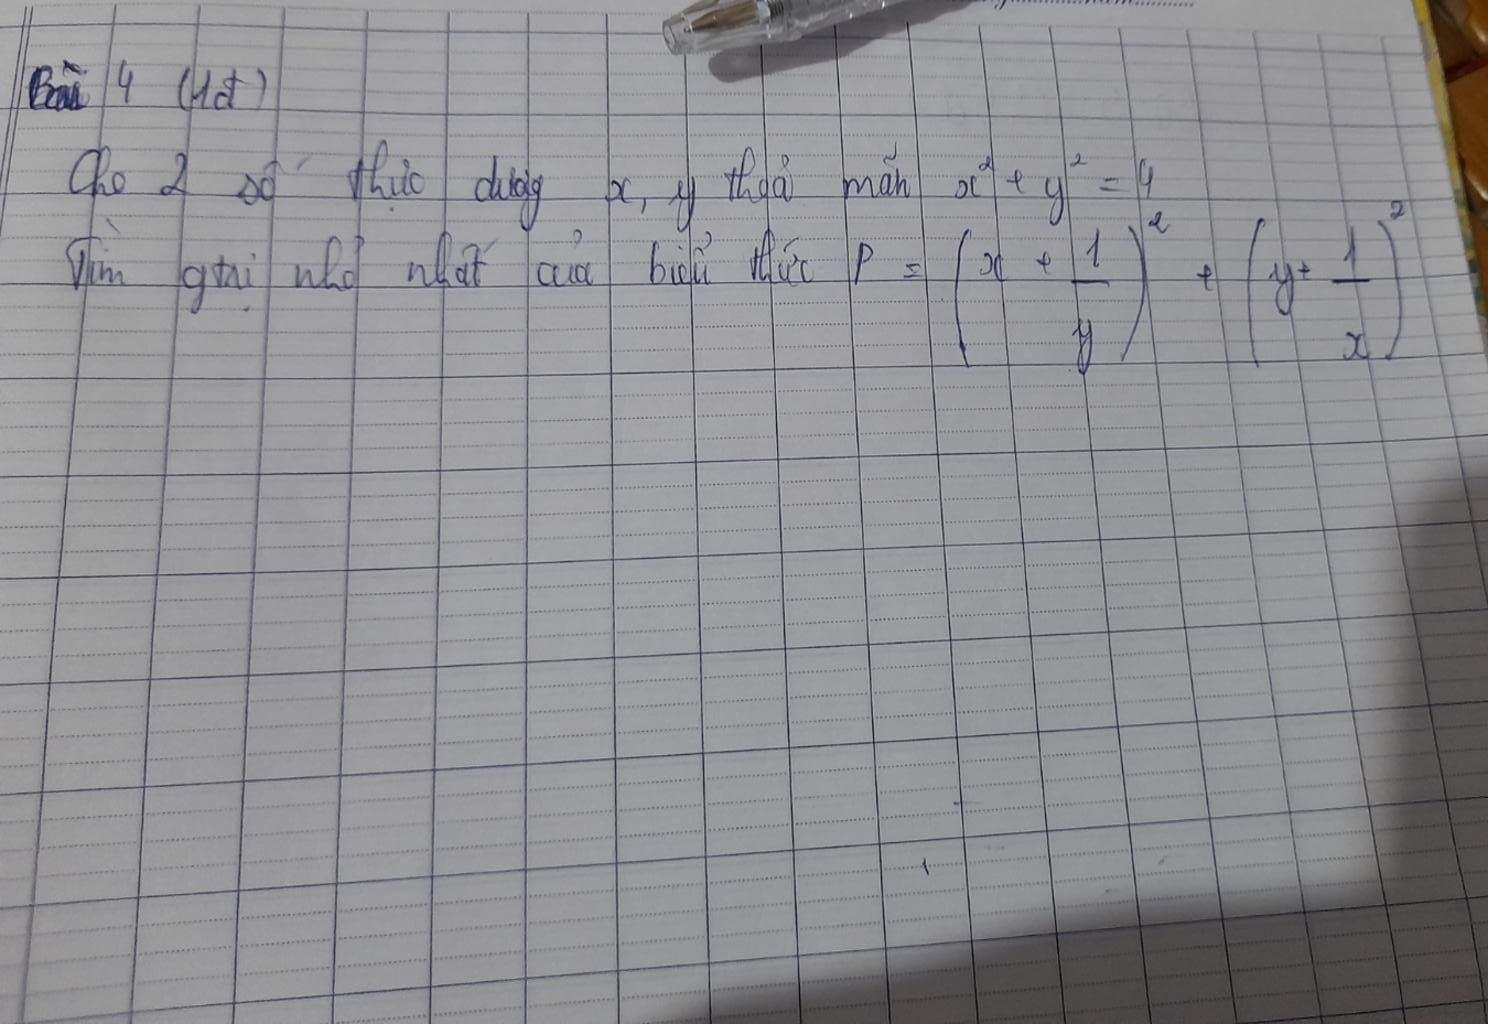 Bài 4 (1đ)
Cho 2 số thực dương x, y thoả mãn x² + y² = 4
Tìm gtrị nhỏ nhất của biểu thức P = (x + 1/y)² + (y + 1/x)²